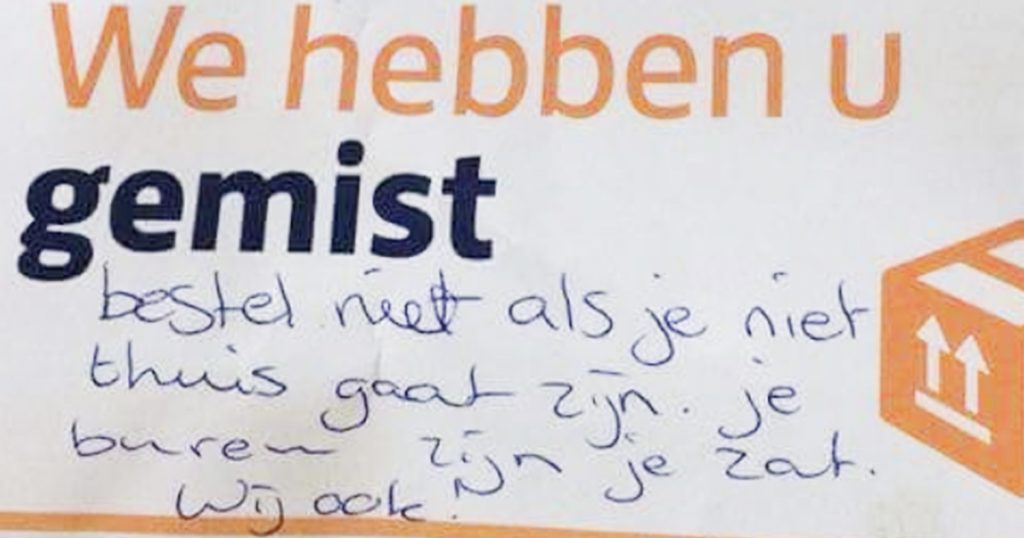 We hebben u
gemist
bestel niet als je niet
thuis gaat zijn. je
buren zijn je zat.
Wij ook!